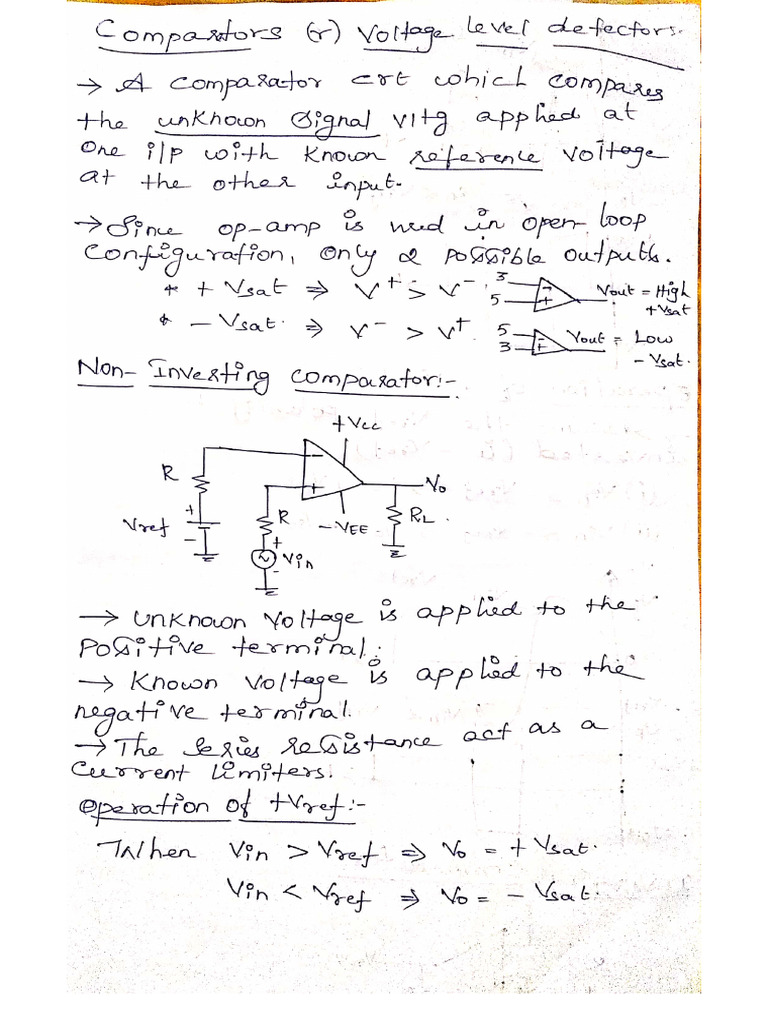 Comparators (or) Voltage level detectors.
→ A comparator ckt which compares
the unknown signal vltg applied at
one i/p with known reference voltage
at the other input.
→ Since op-amp is used in open loop
configuration, only 2 possible outputs.
* + Vsat ⇒ V+ > V-
3
5
- +
Vout = High
+Vsat
* - Vsat. ⇒ V- > V+
5
3
- +
Vout = Low
- Vsat.
Non-Inverting comparator:-
+Vcc
R
-
+
Vo
+
Vref
-
R
-VEE
RL
+
Vin
-
→ unknown voltage is applied to the
positive terminal.
→ Known voltage is applied to the
negative terminal.
→ The series resistance act as a
current limiters.
operation of +Vref:-
When Vin > Vref ⇒ Vo = + Vsat.
Vin < Vref ⇒ Vo = - Vsat.